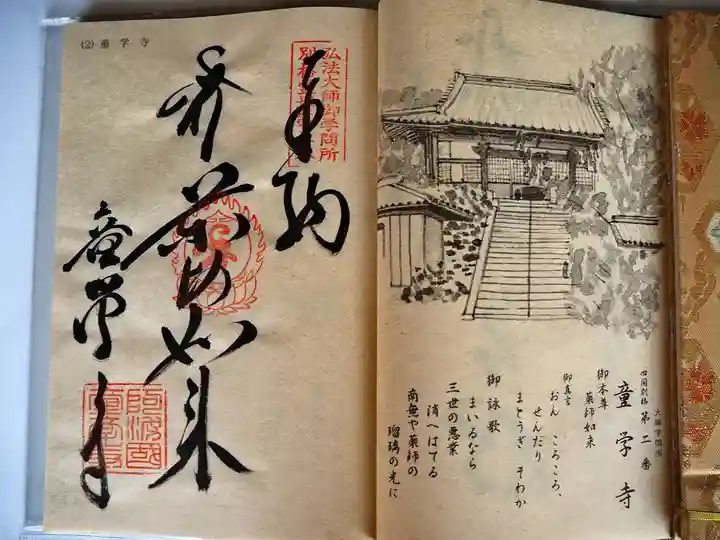 (2) 童学寺
奉納
弘法大師御学問所
薬師如来
童学寺
阿波國
大師学問所
四国別格 第二番
童学寺
御本尊
薬師如来
御真言
おん ころころ、
せんだり
まとうぎ そわか
御詠歌
まいるなら
三世の悪業
消へはてる
南無や薬師の
瑠璃の光に